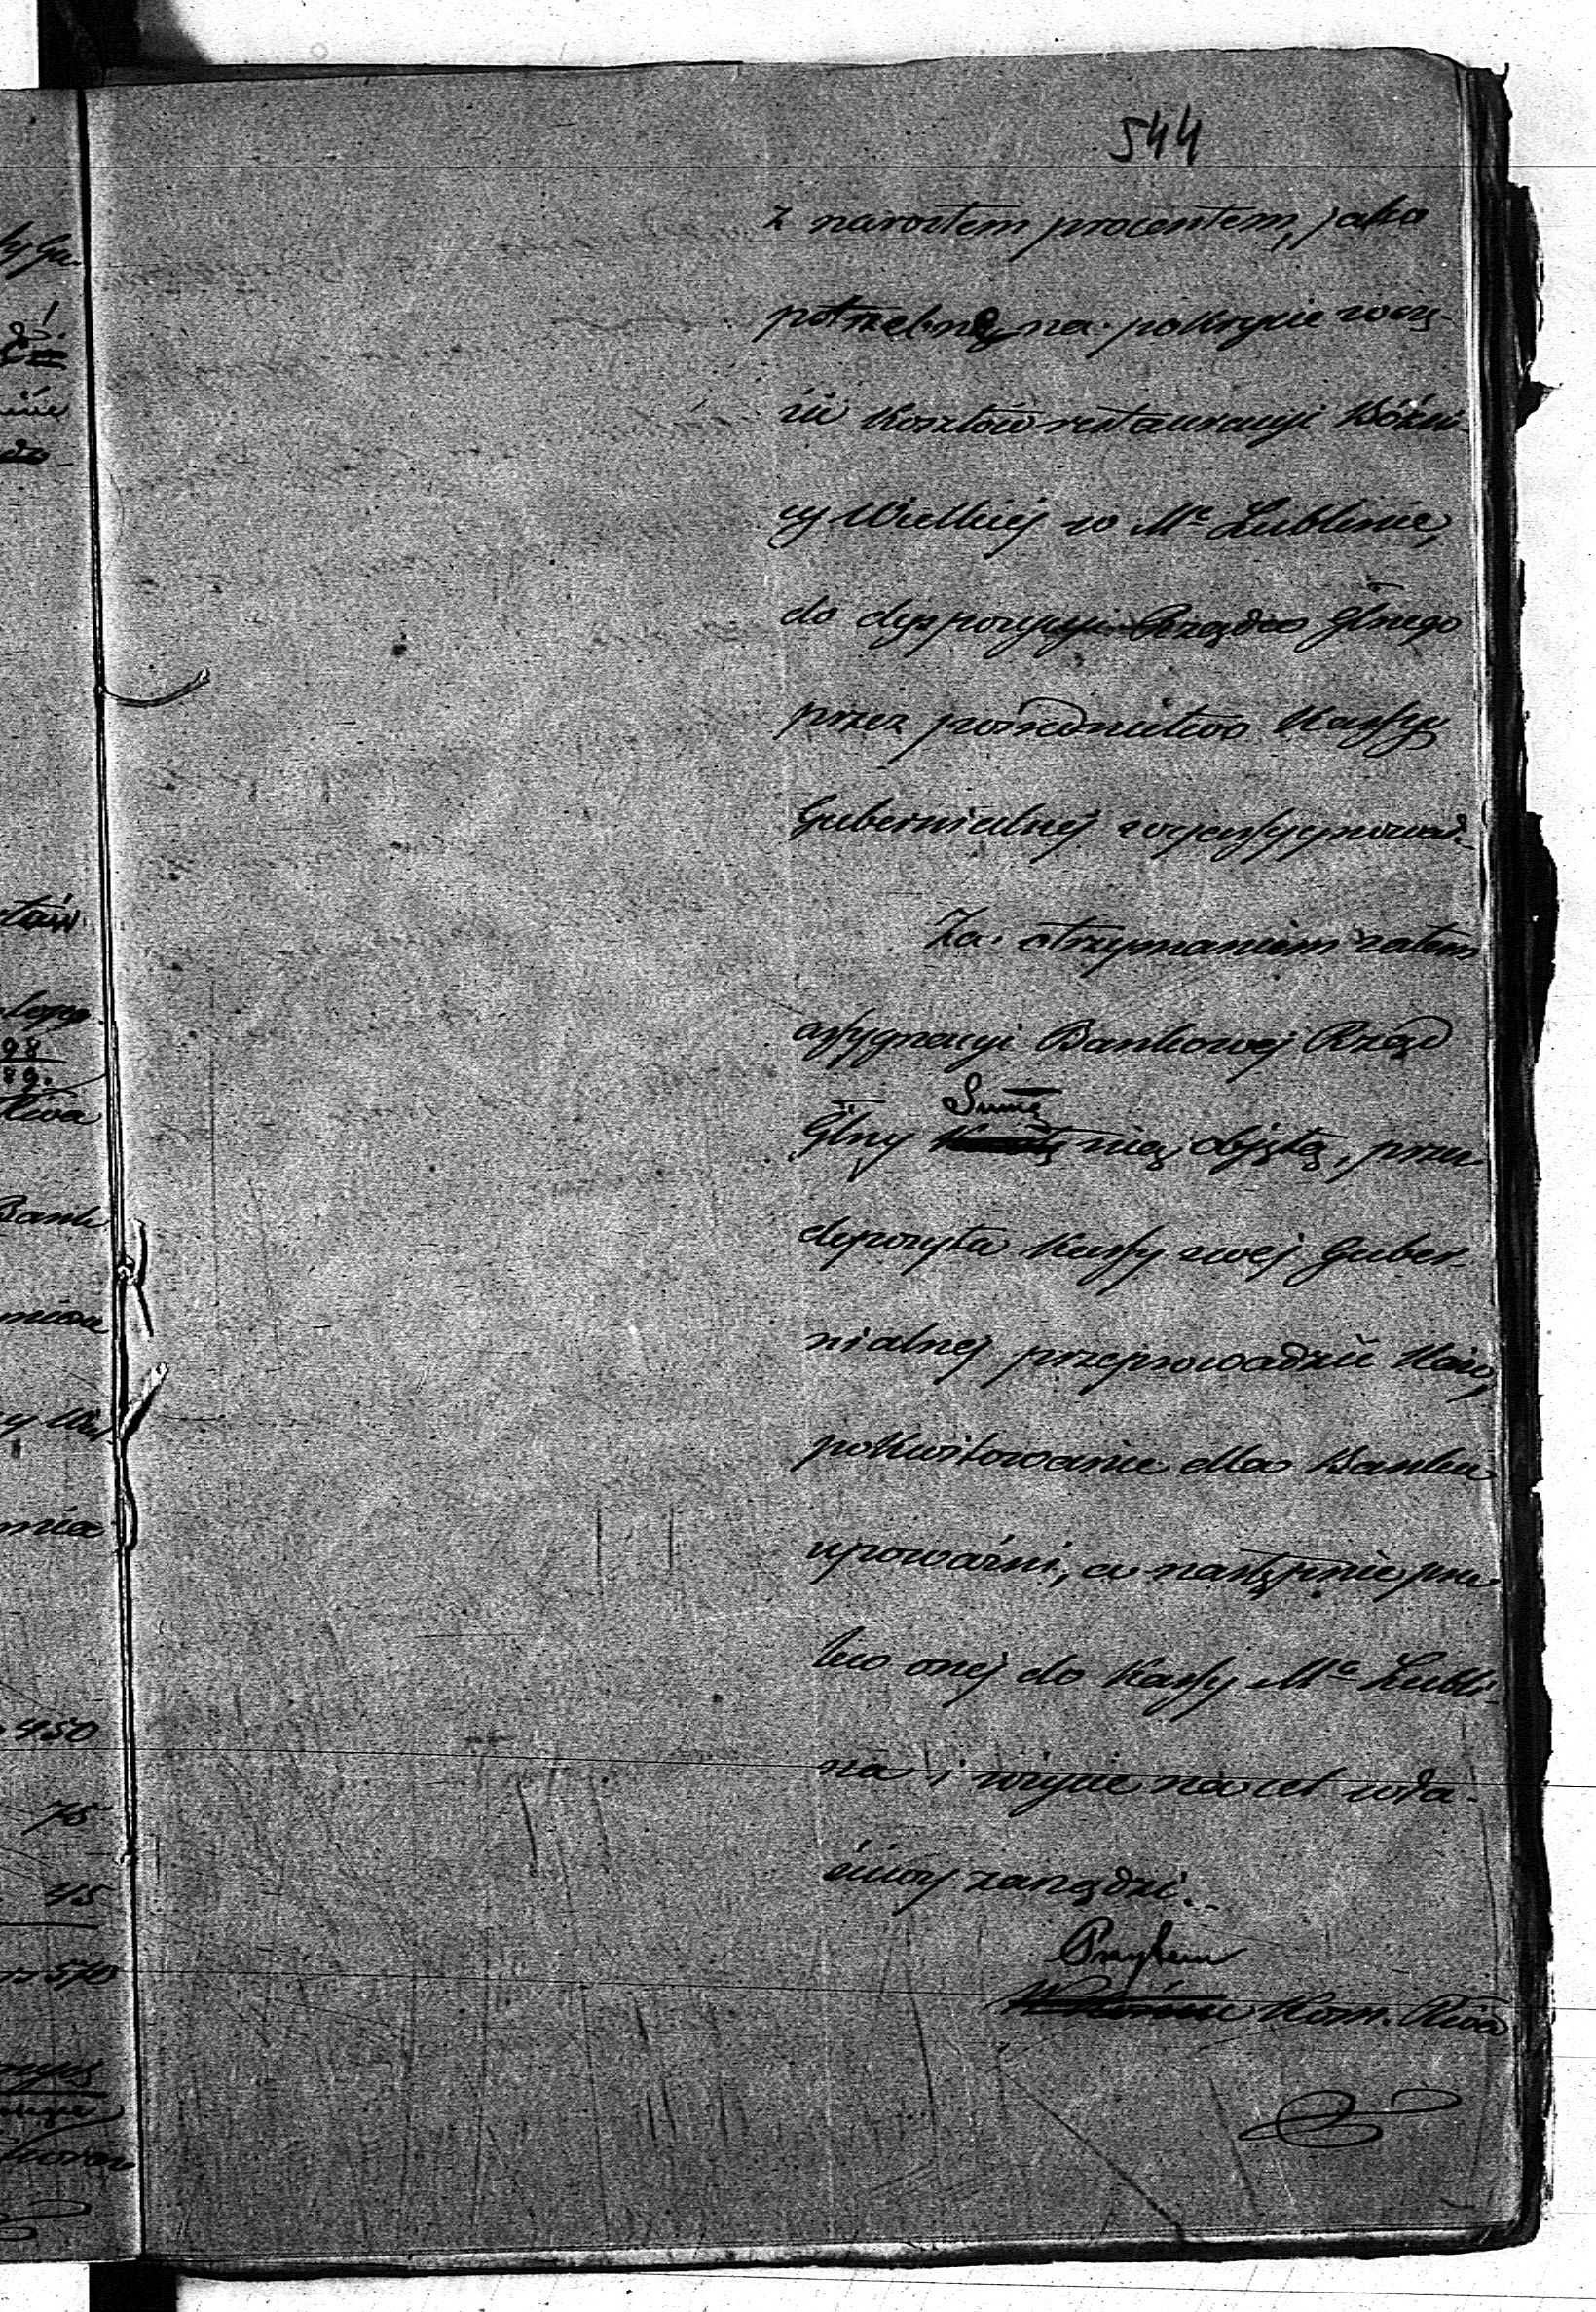 544
z narostem procentem, jako
potrzebną na pokrycie częś-
ci Kosztów restauracyi Bóżni-
cy Wielkiej w Mc Lublinie,
do dyspozycyi Rządu Glnego
przez pośrednictwo Kassy
Gubernialnej wyassygnował.
Za otrzymaniem zatem
assygnacyi Bankowej Rząd
Glny Summę nią objętą, przez
depozyta Kassy swej Guber-
nialnej przeprowadzić każe,
pokwitowanie dla Banku
upoważni, a następnie prze
lew onej do Kassy Mc Lubli-
na i użycie na cel wła-
ściwy zarządzi.
Kom. Rząd
450
75
45
Bank
mia
98
89.